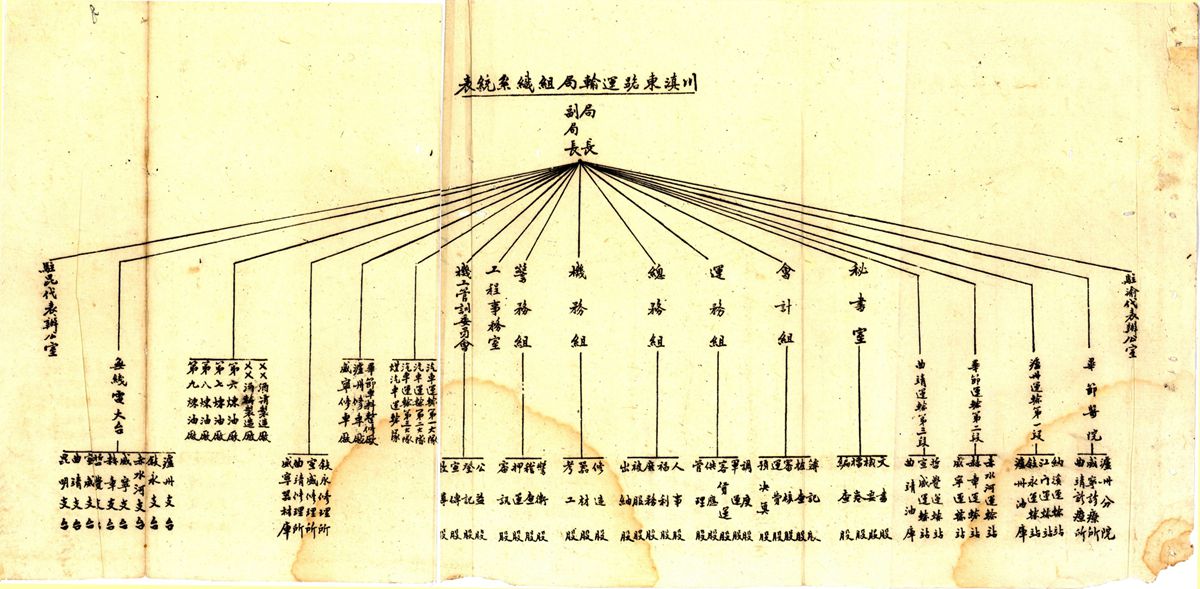 川滇東路運輸局組織系統表
局長
副局長
駐渝代表辦公室
畢節醫院
瀘州分院
威寧診療所
曲靖診療所
瀘州運輸第一段
納溪運輸站
江門運輸站
敘永運輸站
瀘州油庫
畢節運輸第二段
赤水河運輸站
赫章運輸站
威寧運輸站
曲靖運輸第三段
哲覺運輸站
宣威運輸站
曲靖油庫
秘書室
文書股
檔案股
編查股
會計組
簿記股
審核股
運費股
預決算股
運務組
調度股
軍運股
客貨運股
供應股
管理股
總務組
人事股
福利股
庶務股
被服股
出納股
機務組
修造股
器材股
考工股
警務組
警衛股
稽查股
押運股
審訊股
工程事務室
機工管訓委員會
公益股
登記股
宣傳股
汽車運輸第一大隊
汽車運輸第二大隊
汽車運輸第三大隊
煤汽車運輸隊
畢節車料修造廠
瀘州修車廠
威寧修車廠
敘永修理所
宣威修理所
曲靖修理所
威寧器材庫
XX酒精製造廠
第六煉油廠
第七煉油廠
第八煉油廠
第九煉油廠
無綫電大台
瀘州支台
敘永支台
赤水河支台
威寧支台
赫章支台
哲覺支台
宣威支台
曲靖支台
昆明支台
駐昆代表辦公室